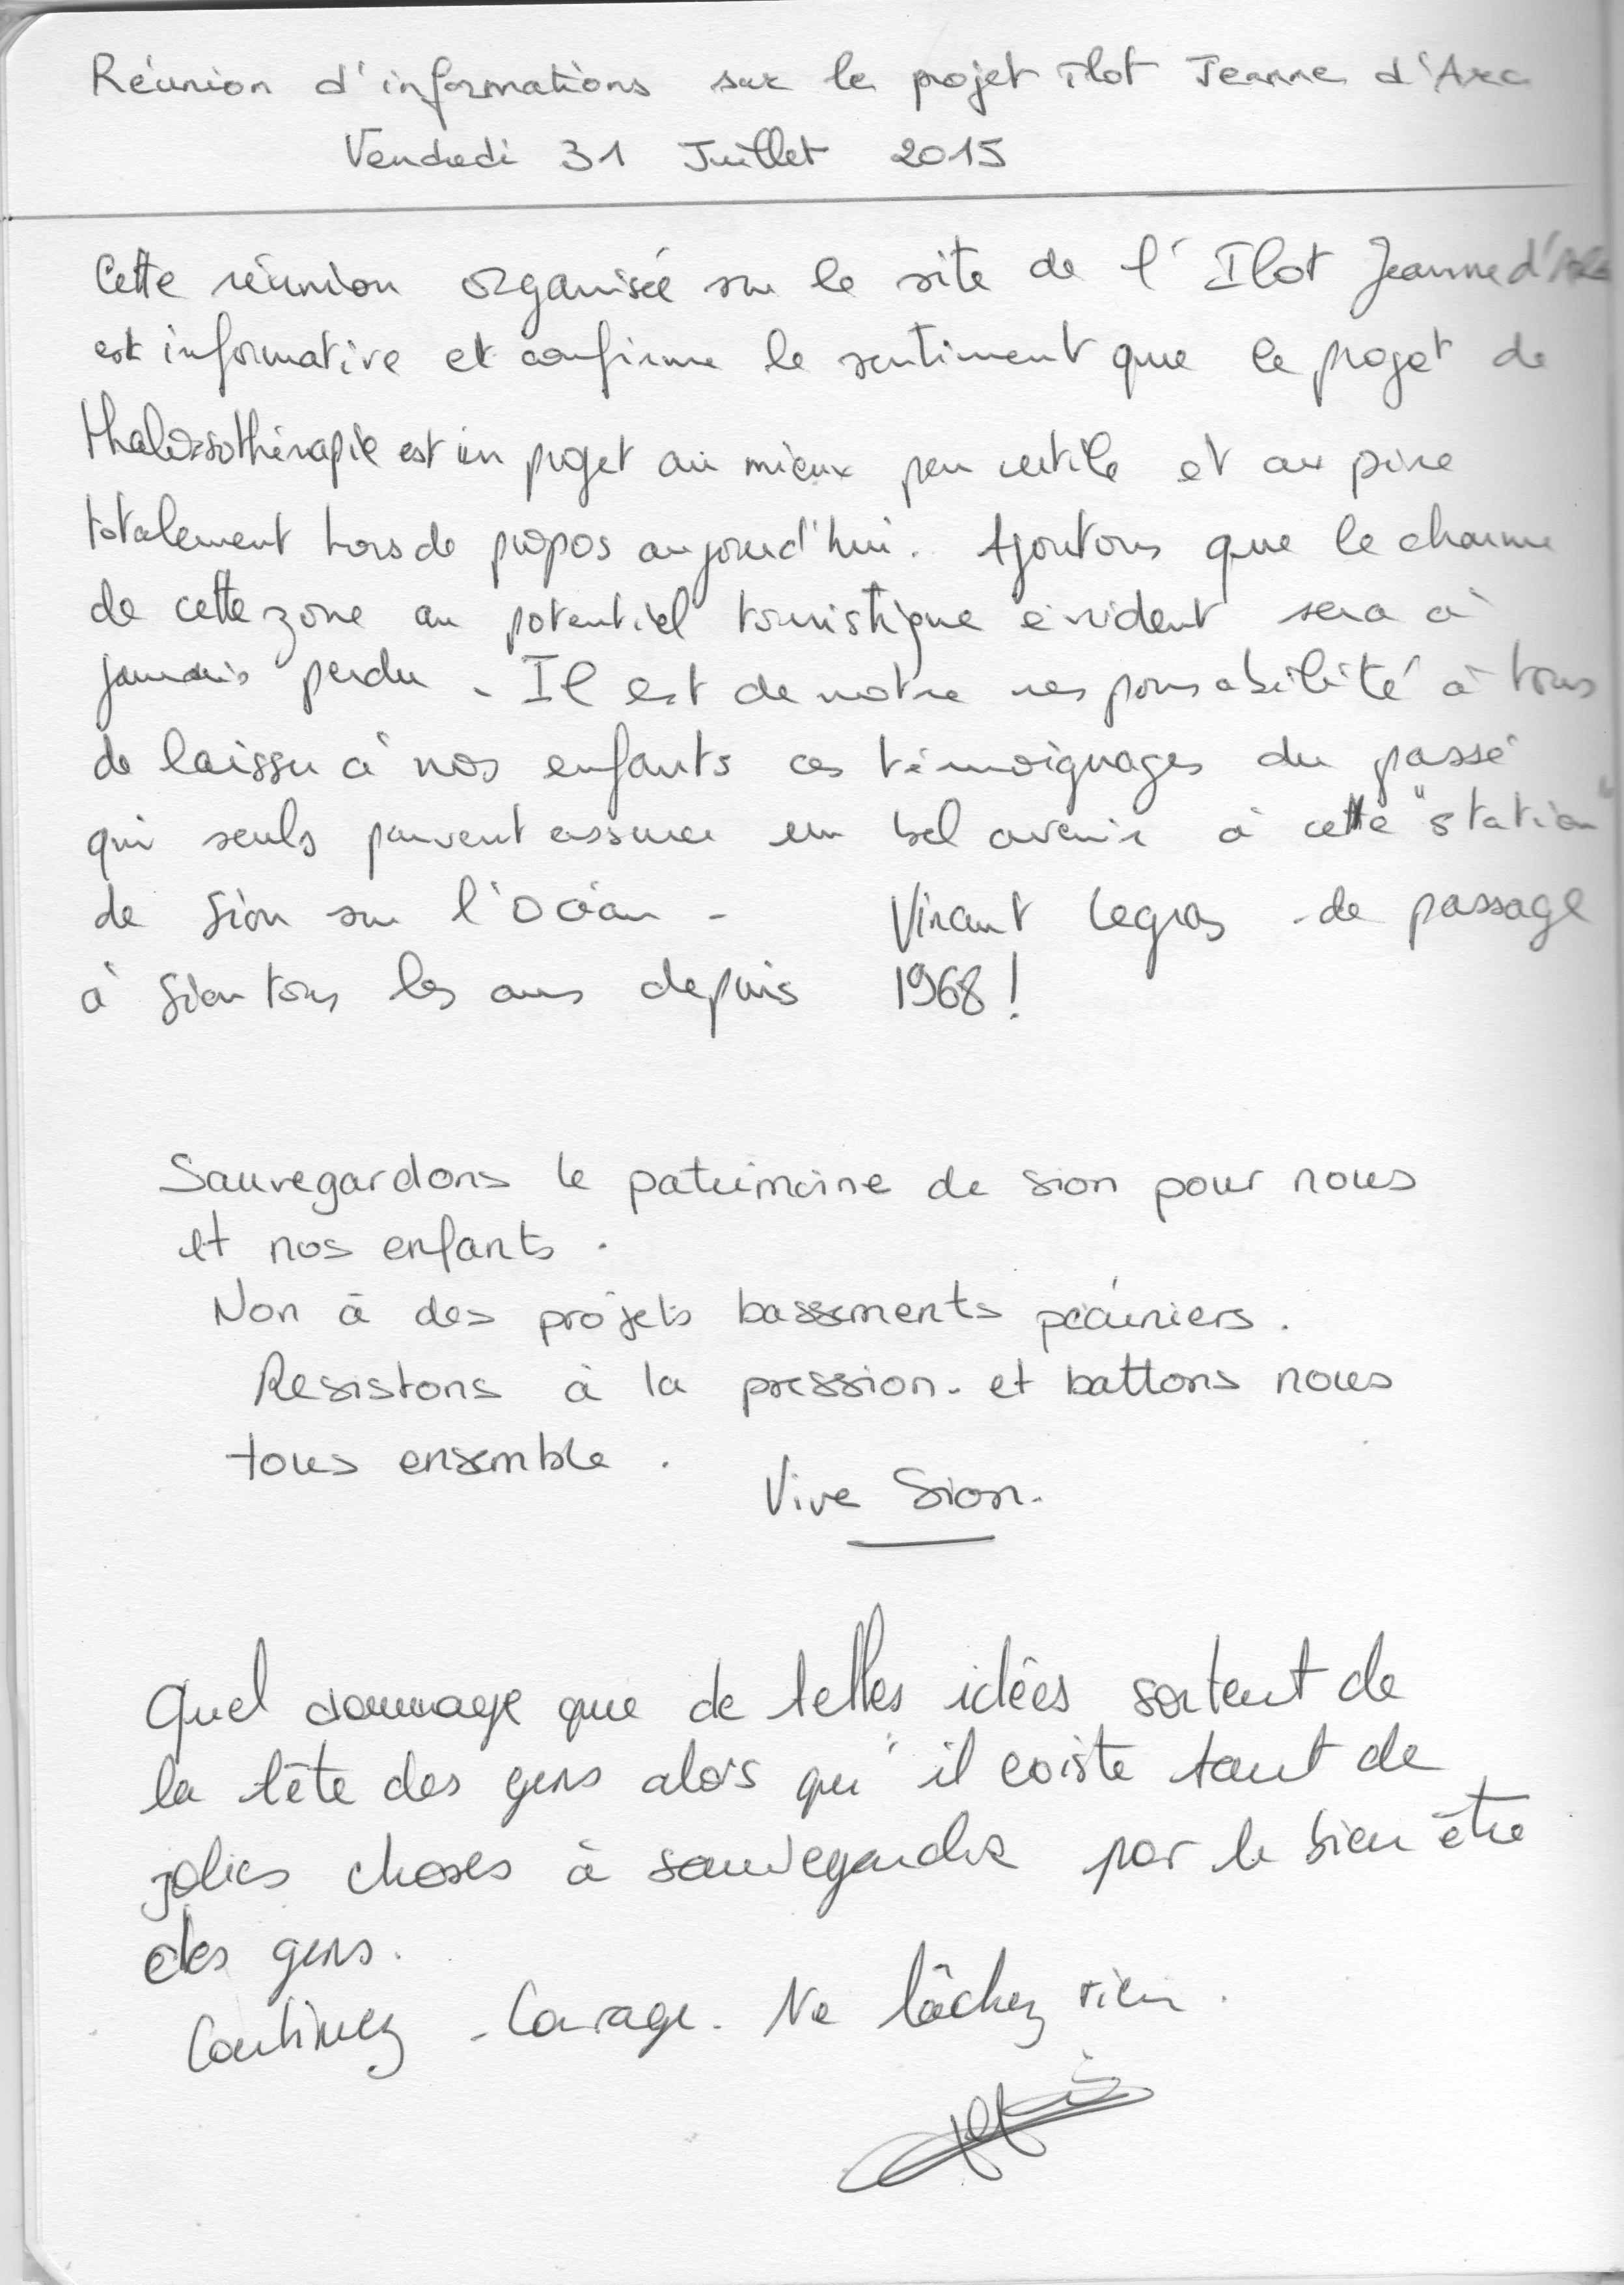 Réunion d'informations sur le projet Ilot Jeanne d'Arc
Vendredi 31 Juillet 2015
Cette réunion organisée sur le site de l'Ilot Jeanne d'Arc
est informative et confirme le sentiment que le projet de
thalassothérapie est un projet au mieux peu utile et au pire
totalement hors de propos aujourd'hui. Ajoutons que le charme
de cette zone au potentiel touristique évident sera à
jamais perdu - Il est de notre responsabilité à tous
de laisser à nos enfants ces témoignages du passé
qui seuls peuvent assurer un bel avenir à cette "station"
de Sion sur l'Océan - Vincent Legras - de passage
à Sion tous les ans depuis 1968!
Sauvegardons le patrimoine de sion pour nous
et nos enfants.
Non à des projets bassements pécuniers.
Resistons à la pression. et battons nous
tous ensemble.
Vive Sion.
Quel dommage que de telles idées sortent de
la tête des gens alors qu'il existe tant de
jolies choses à sauvegarder par le bien être
des gens.
Continuez - Courage. Ne lâchez rien.